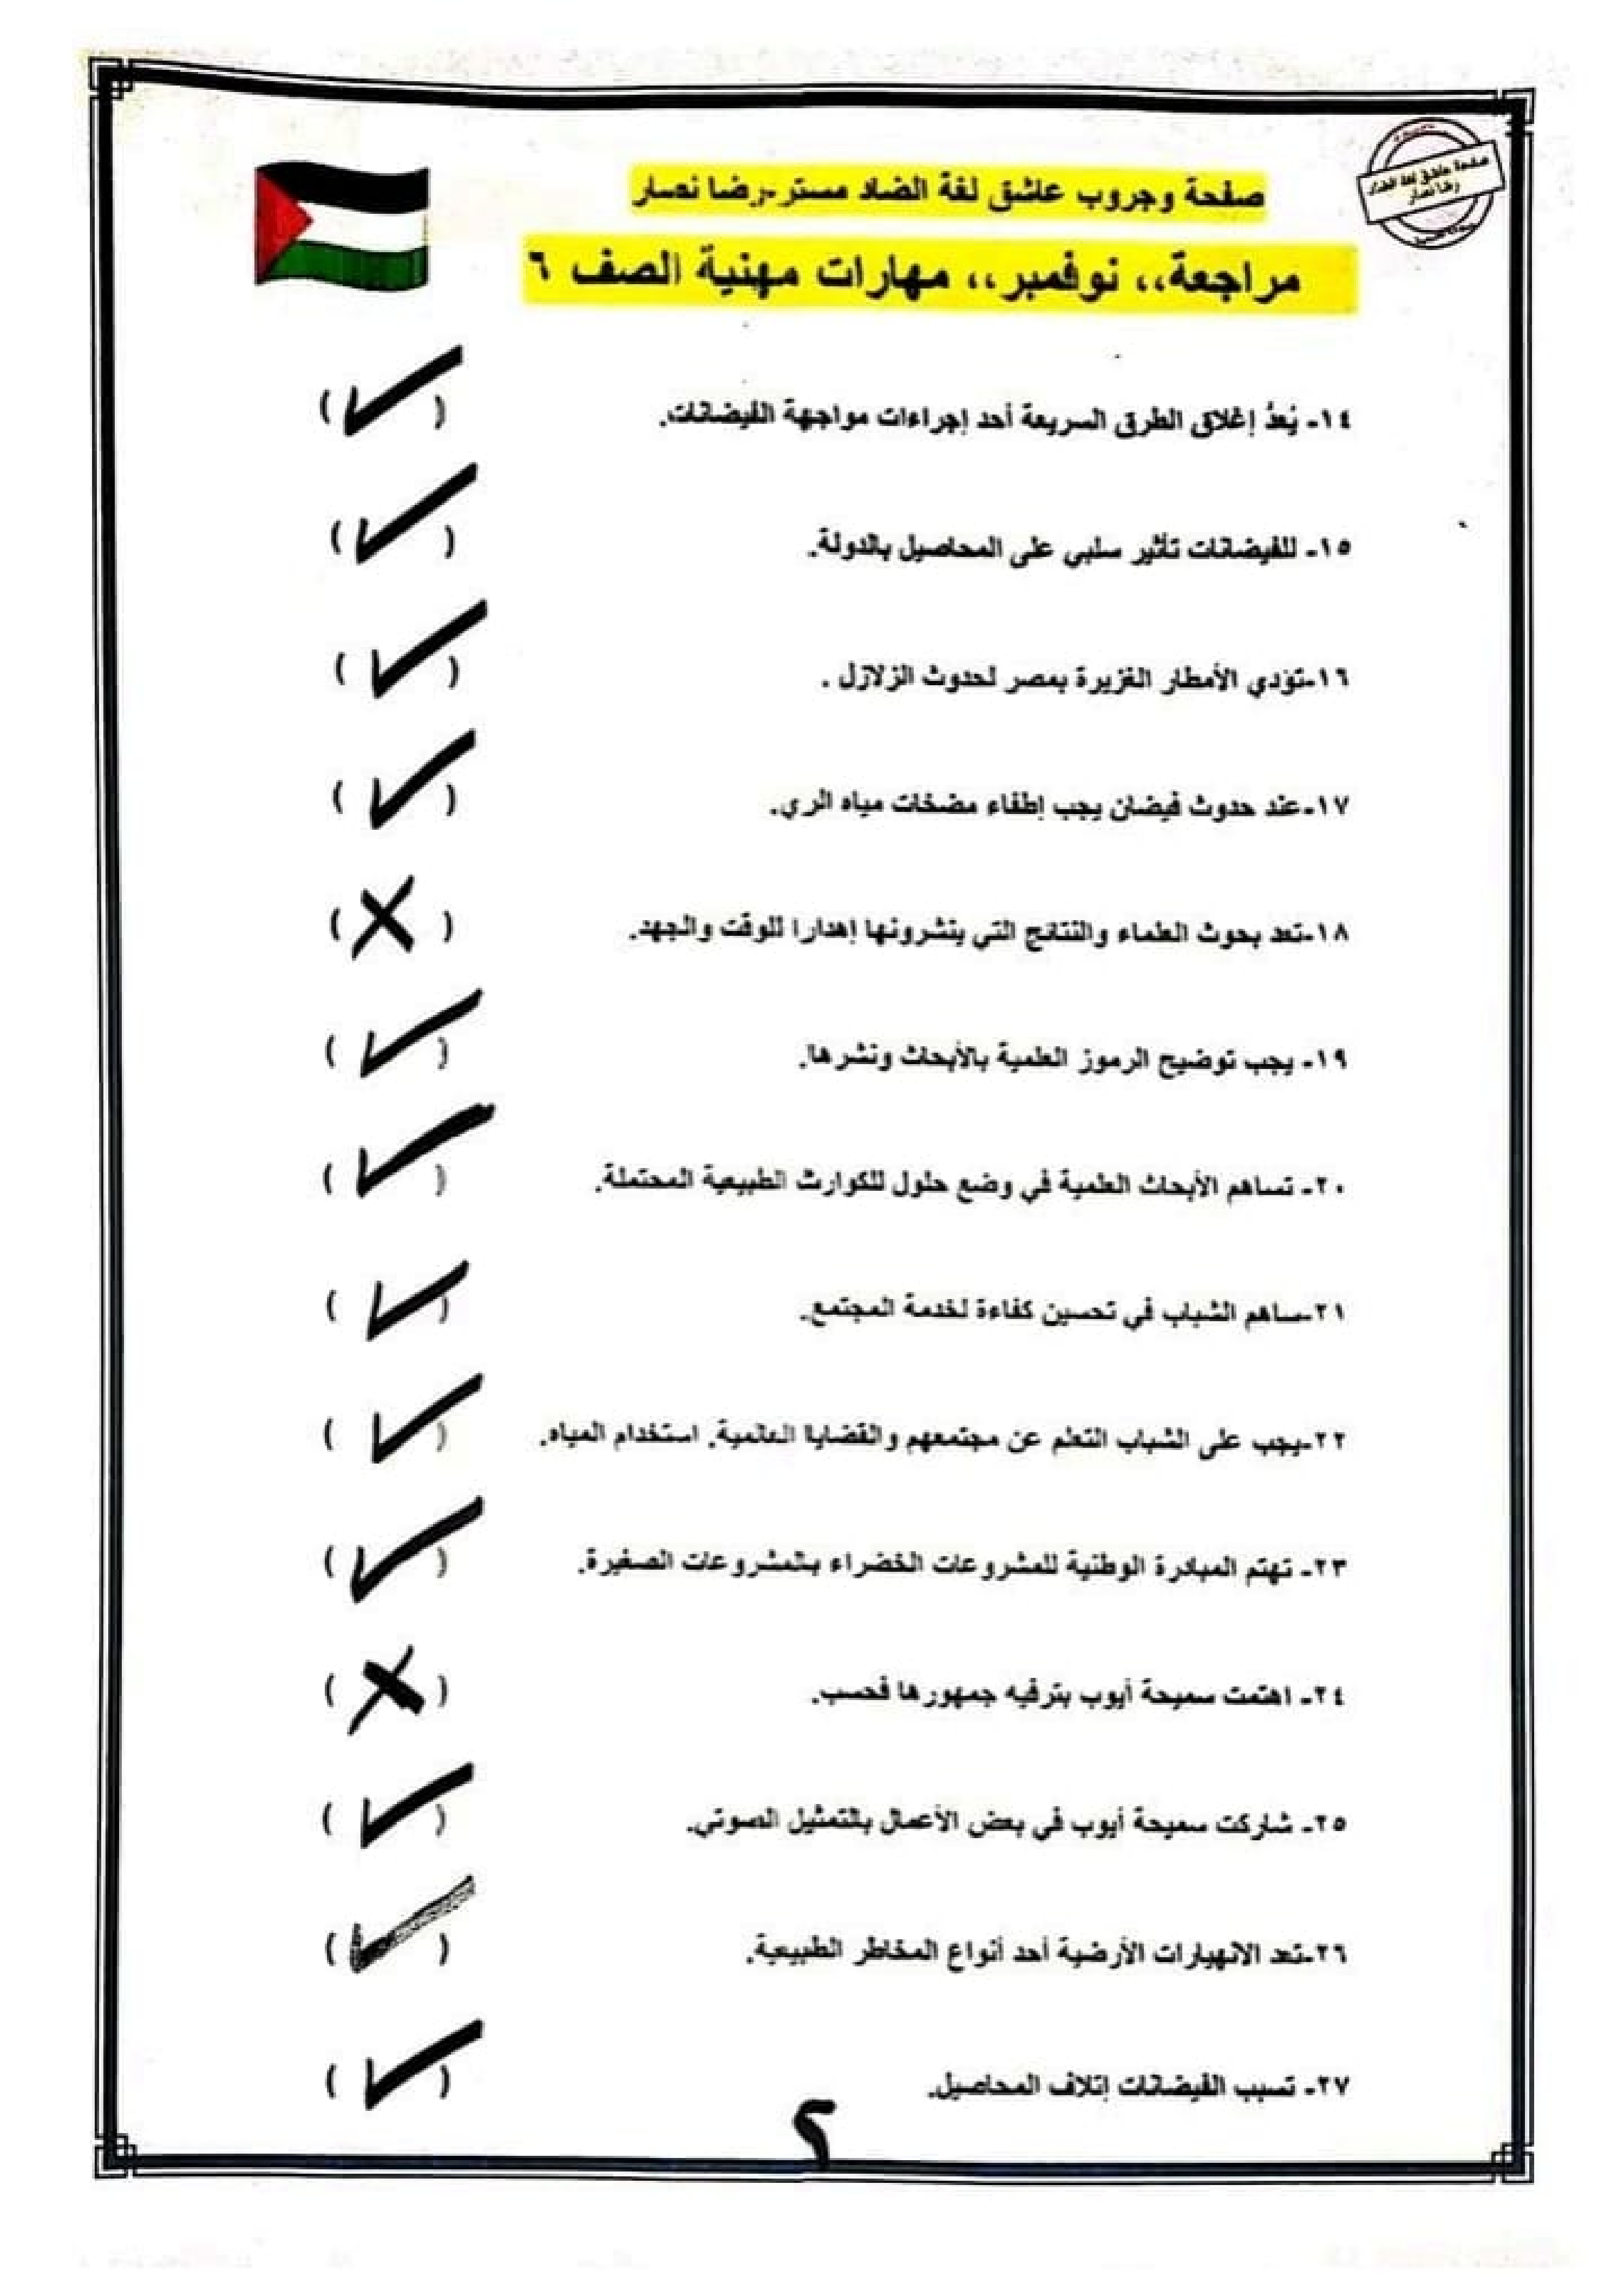 صفحة عاشق لغة الضاد
رضا نصار
صفحة وجروب عاشق لغة الضاد مستر-رضا نصار
مراجعة،، نوفمبر،، مهارات مهنية الصف ٦
١٤- يُعدُّ إغلاق الطرق السريعة أحد إجراءات مواجهة الفيضانات. ( ✓ )
١٥- للفيضانات تأثير سلبي على المحاصيل بالدولة. ( ✓ )
١٦-تؤدي الأمطار الغزيرة بمصر لحدوث الزلازل . ( ✓ )
١٧-عند حدوث فيضان يجب إطفاء مضخات مياه الري. ( ✓ )
١٨-تعد بحوث العلماء والنتائج التي ينشرونها إهدارا للوقت والجهد. ( X )
١٩- يجب توضيح الرموز العلمية بالأبحاث ونشرها. ( ✓ )
٢٠- تساهم الأبحاث العلمية في وضع حلول للكوارث الطبيعية المحتملة. ( ✓ )
٢١-ساهم الشباب في تحسين كفاءة لخدمة المجتمع. ( ✓ )
٢٢-يجب على الشباب التعلم عن مجتمعهم والقضايا العالمية. استخدام المياه. ( ✓ )
٢٣- تهتم المبادرة الوطنية للمشروعات الخضراء بالمشروعات الصغيرة. ( ✓ )
٢٤- اهتمت سميحة أيوب بترفيه جمهورها فحسب. ( X )
٢٥- شاركت سميحة أيوب في بعض الأعمال بالتمثيل الصوتي. ( ✓ )
٢٦-تعد الانهيارات الأرضية أحد أنواع المخاطر الطبيعية. ( ✓ )
٢٧- تسبب الفيضانات إتلاف المحاصيل. ( ✓ )
٢